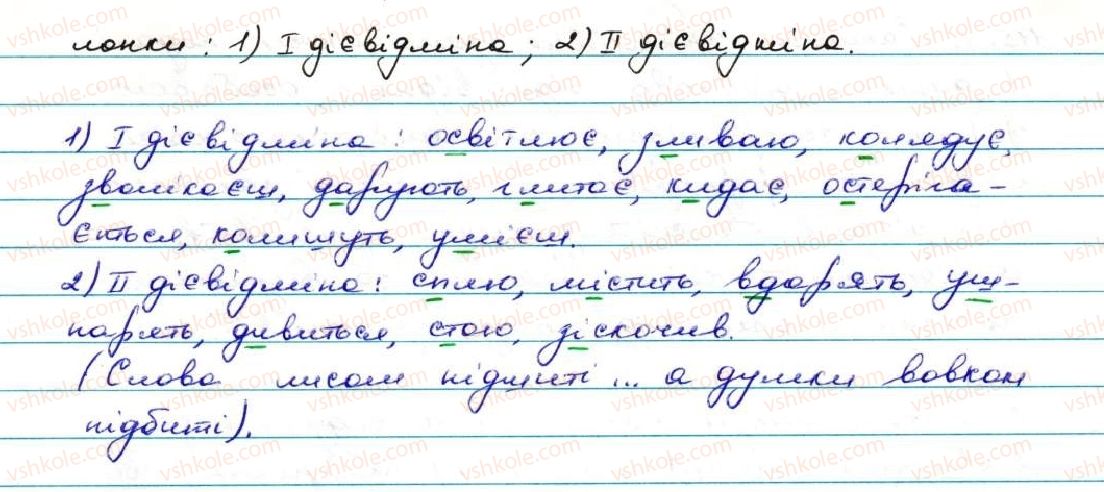 лонки: 1) I дієвідміна; 2) II дієвідміна.
1) I дієвідміна: освітлює, зливаю, колядує,
зволікаєш, дарують, глитає, кидає, остеріга-
ється, колишуть, умієш.
2) II дієвідміна: сплю, містить, вдарять, уш-
парять, дивиться, стою, зіскочив.
(Слова лисом підшиті ... а думки вовком
підбиті).
vshkole.com